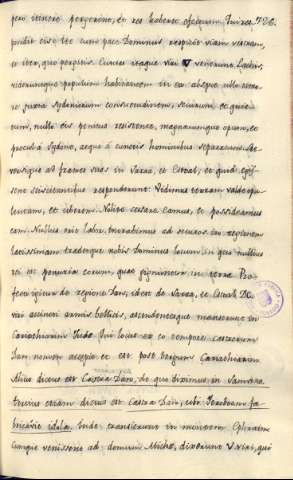 rent itinere pergerent, et res haberet effectum. Qui res. 726.
pondit eis: Ite cum pace Dominus respicit viam vestram,
et iter, quo pergitis. Euntes itaque viri V venerunt Lachis,
videruntque populum habitantem in ea absque ullo timo-
re juxta Sydoniorum consuetudinem, securum et quie-
tum, nullo eis penitus resistente, magnarumque opum, et
procul a Sydone, atque a cunctis hominibus separatum. Re-
versique ad fratres suos in Saraa, et Estaol, et quid egis-
sent sciscitantibus responderunt: Vidimus terram valde opu-
lentam, et uberem. Nolite cessare eamus, et possideamus
eam. Nullus erit labor. Intrabimus ad securos in regionem
latissimam tradetque nobis Dominus locum in quo nullius
rei est penuria eorum, quae gignuntur in terra. Pro-
fecti igitur de regione Dan, idest de Saraa, et Estaol. DC.
viri accincti armis bellicis, ascendentesque manserunt in
Cariathiarim Judae. Qui locus ex eo tempore Castrorum
Dan nomen accepit et est post tergum Cariathiarim
Alius dictus est Castra Dan, de quo diximus in Samsone
tertius etiam dictus est Castra Dan, ubi Jeroboam fa-
bricavit idola. Inde transierunt in montem Ephraim
cumque venissent ad domum Michae, dixerunt V viri, qui